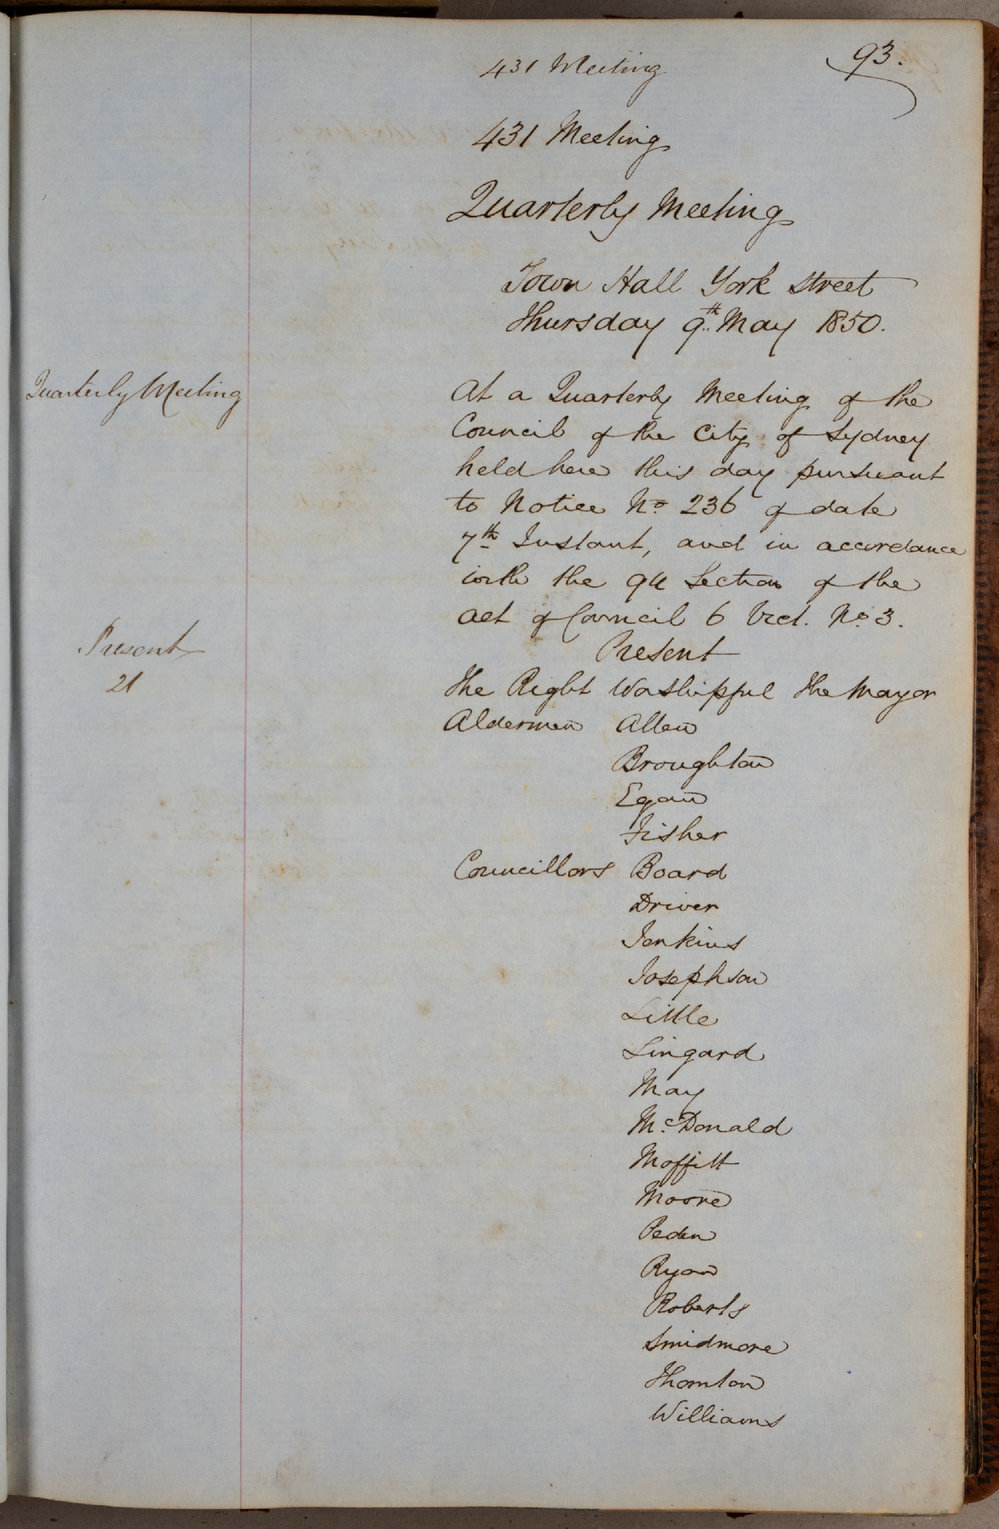 93.
431 Meeting
431 Meeting
Quarterly Meeting
Town Hall York Street
Thursday 9th May 1850.
Quarterly Meeting
At a Quarterly Meeting of the
Council of the City of Sydney
held here this day pursuant
to Notice No 236 of date
7th Instant, and in accordance
with the 94 Section of the
Act of Council 6 Vict. No 3.
Present
21
Present
The Right Worshipful The Mayor
Aldermen Allen
Broughton
Egan
Fisher
Councillors Board
Driver
Jenkins
Josephson
Little
Lingard
May
McDonald
Moffitt
Moore
Peden
Ryan
Roberts
Smidmore
Thornton
Williams